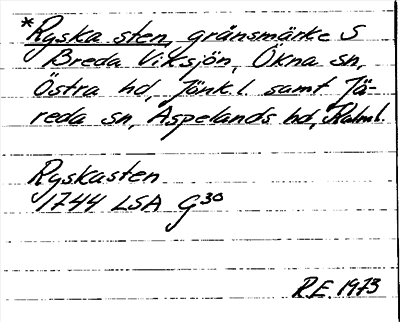 *Ryska sten, gränsmärke S
Breda Viksjön, Ökna sn,
Östra hd, Jönk.l. samt Jä-
reda sn, Aspelands hd, Kalm.l.
Ryskasten
1744 LSA G30
R.E. 1973